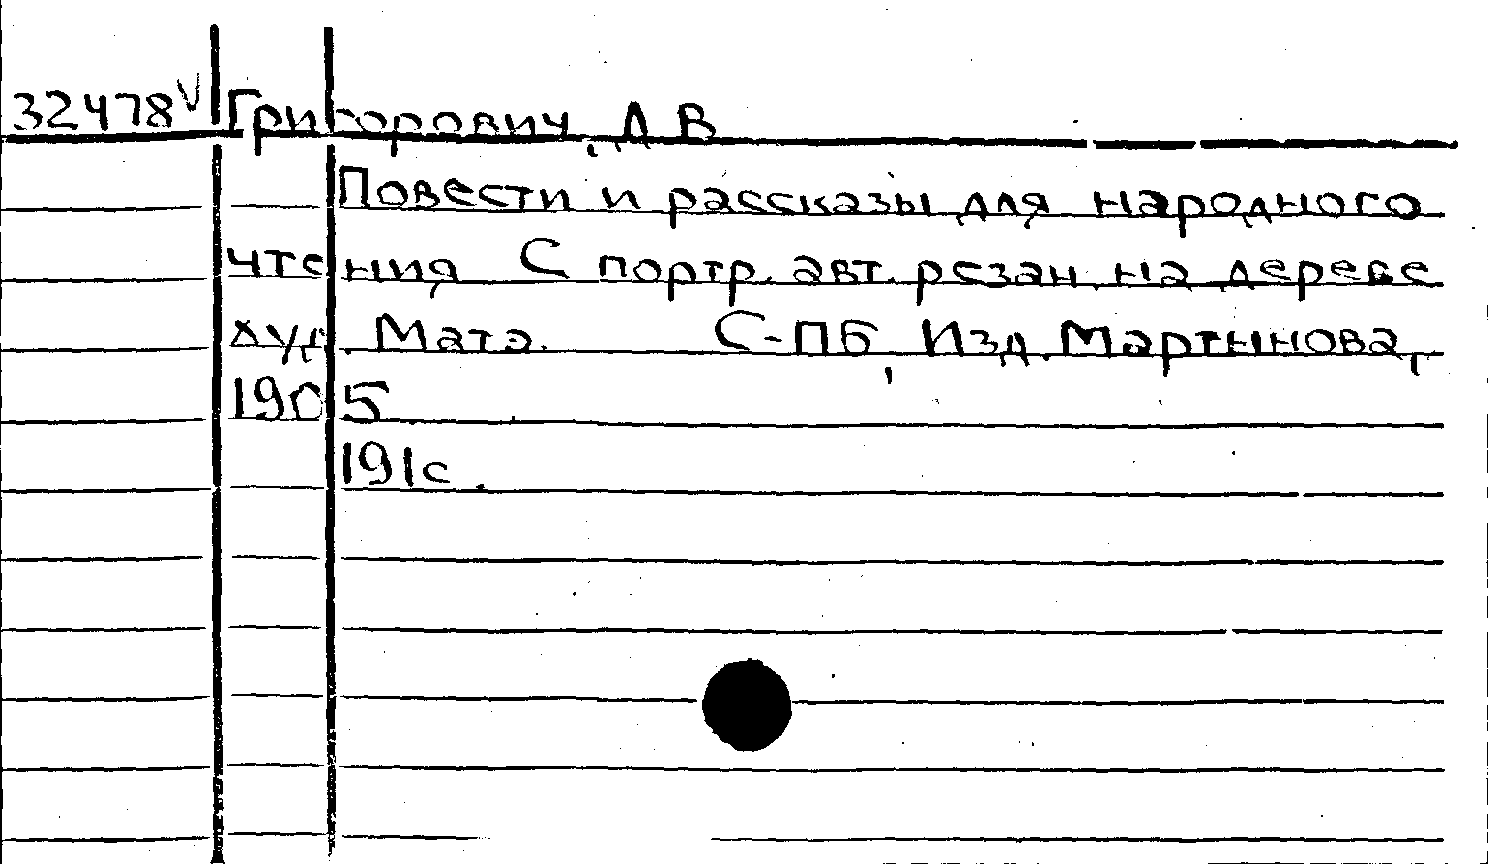 32478 V Григорович, Д В
Повести и рассказы для народного
чтения С портр. авт. резан. на дереве
худ. Матэ. С-ПБ, Изд. Мартынова,
1905
191с.